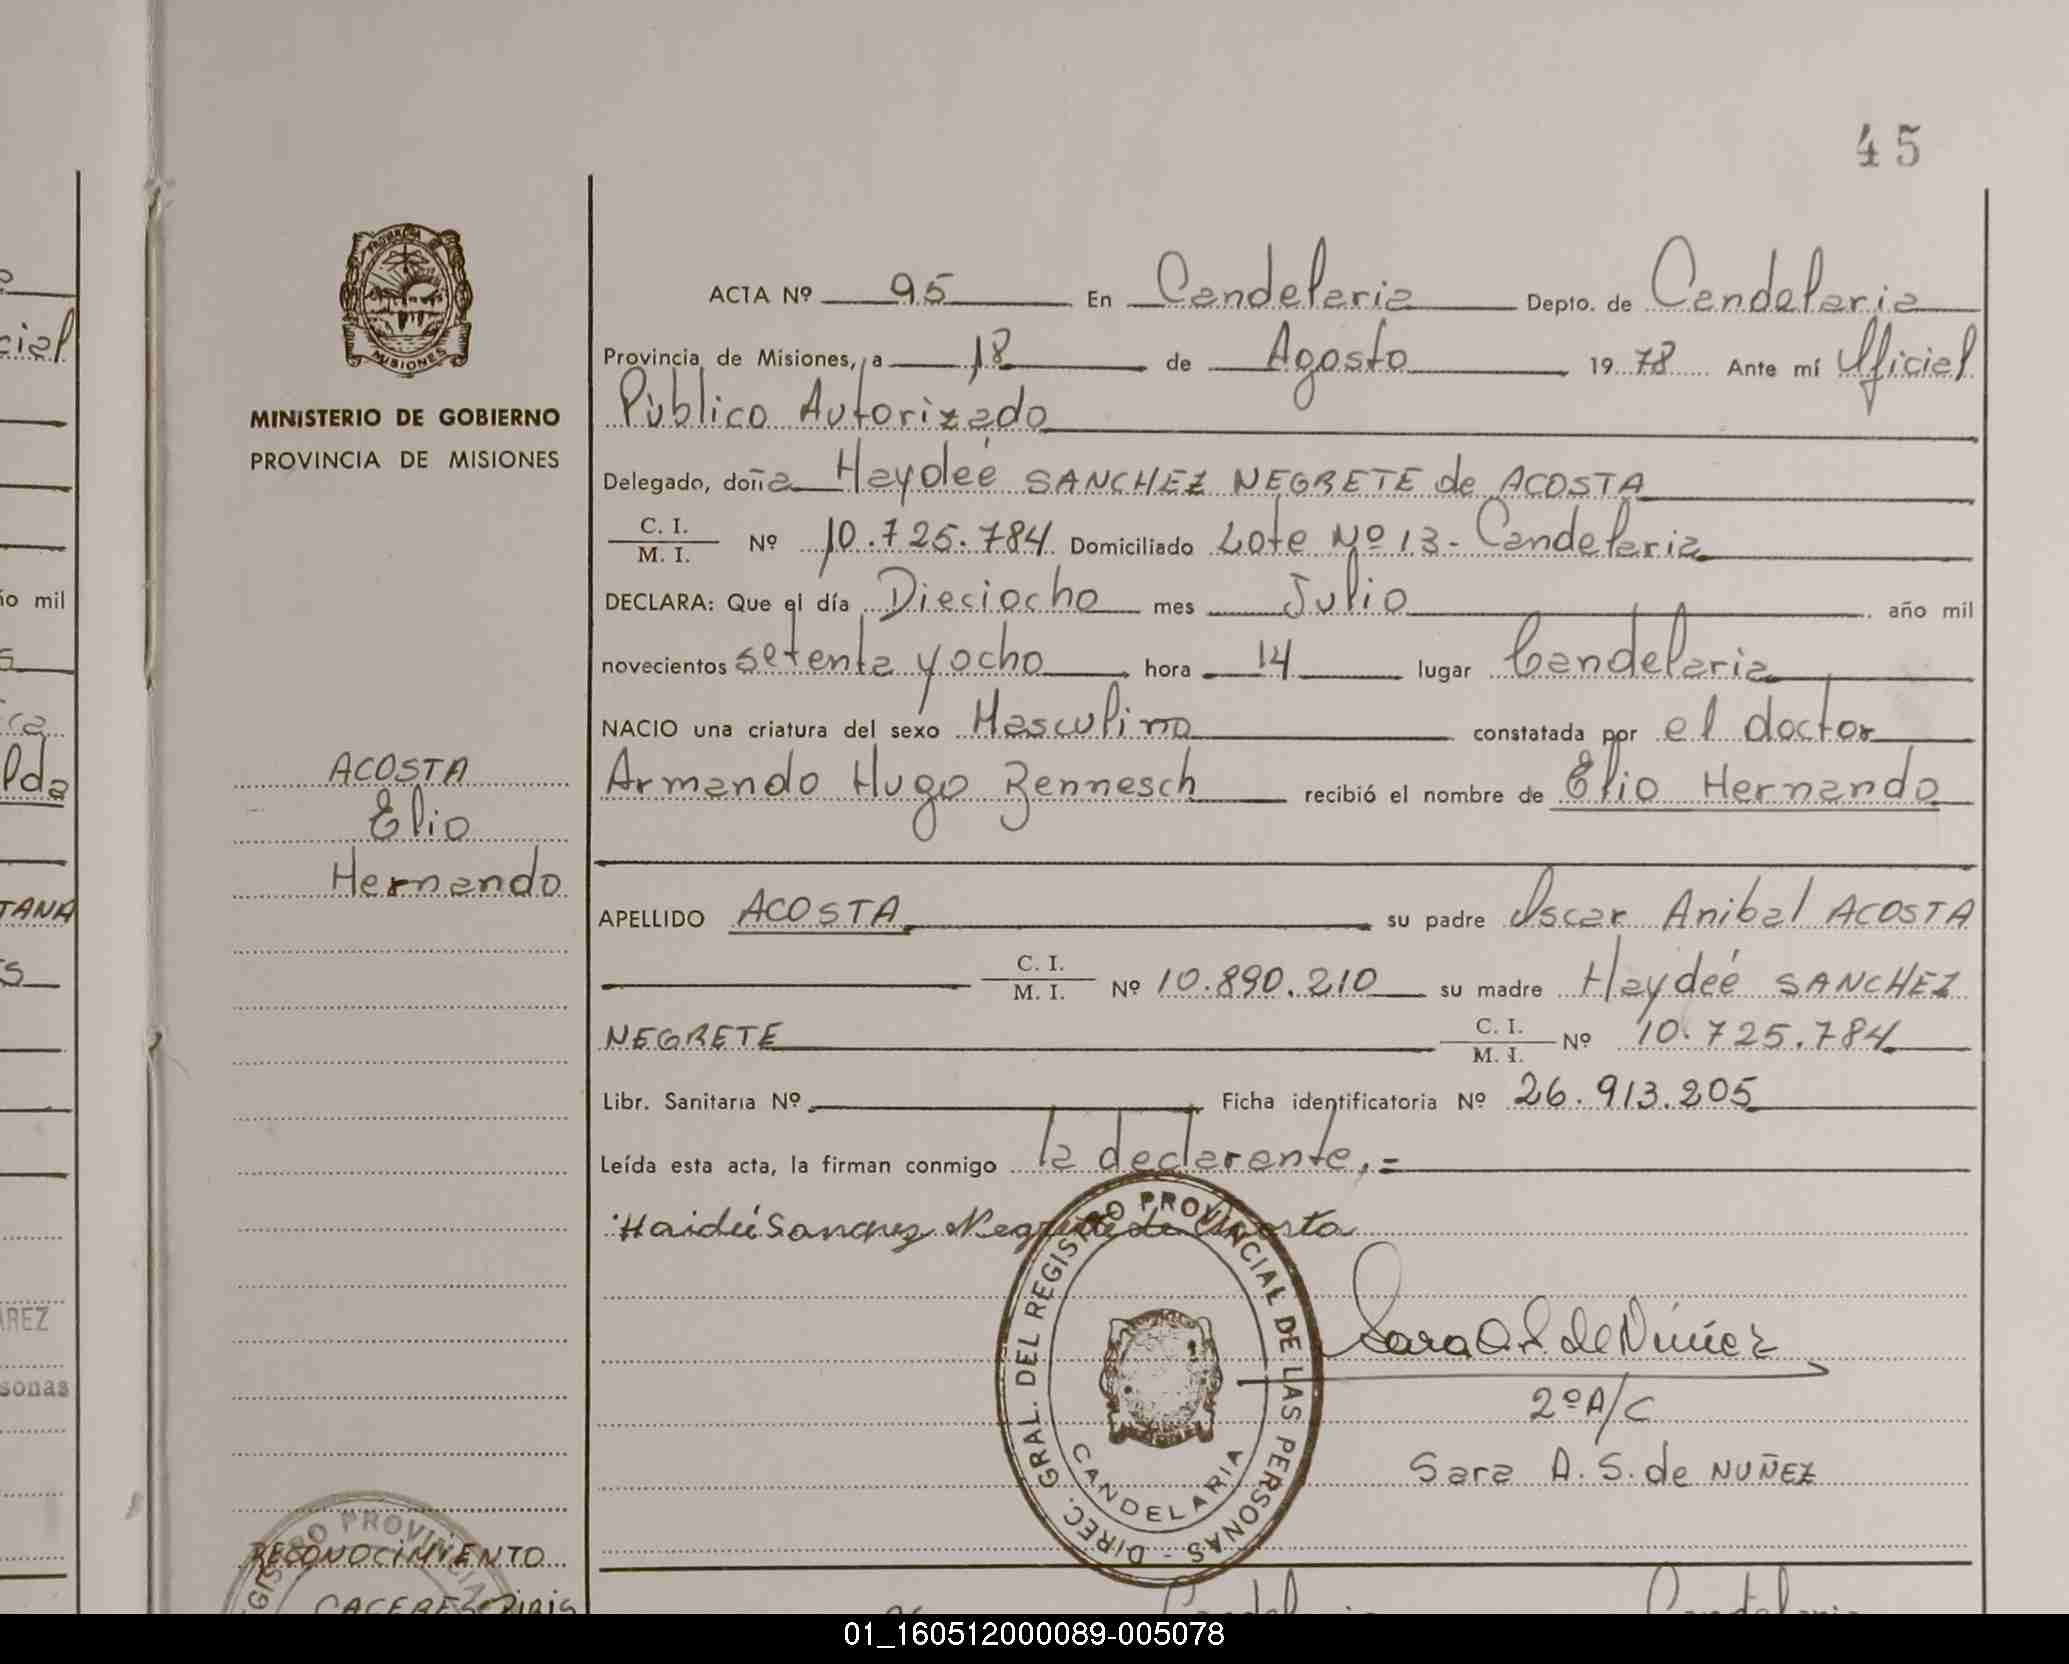 45
PROVINCIA DE
MISIONES
MINISTERIO DE GOBIERNO
PROVINCIA DE MISIONES
ACOSTA
Elio
Hernando
ACTA Nº 95 En Candelaria Depto. de Candelaria
Provincia de Misiones, a 18 de Agosto 1978 Ante mí Oficial
Público Autorizado
Delegado, doña Haydeé SANCHEZ NEGRETE de ACOSTA
C. I.
M. I. Nº 10.725.784 Domiciliado Lote Nº 13- Candelaria
DECLARA: Que el día Dieciocho mes Julio año mil
novecientos setenta y ocho hora 14 lugar Candelaria
NACIO una criatura del sexo Masculino constatada por el doctor
Armando Hugo Bennesch recibió el nombre de Elio Hernando
APELLIDO ACOSTA su padre Oscar Anibal ACOSTA
C. I.
M. I. Nº 10.890.210 su madre Haydeé SANCHEZ
NEGRETE C. I.
M. I. Nº 10.725.784
Libr. Sanitaria Nº Ficha identificatoria Nº 26.913.205
Leída esta acta, la firman conmigo la declarante.=
Haideé Sanchez Negrete de Acosta
DIREC. GRAL. DEL REGISTRO PROVINCIAL DE LAS PERSONAS -
CANDELARIA
Sara A. S. de Núñez
2º A/C
Sara A. S. de NUÑEZ
GISTRO PROVINCIA
RECONOCIMIENTO
CACERES PIRIS
cial
ño mil
lda
TANA
AREZ
sonas
01_160512000089-005078